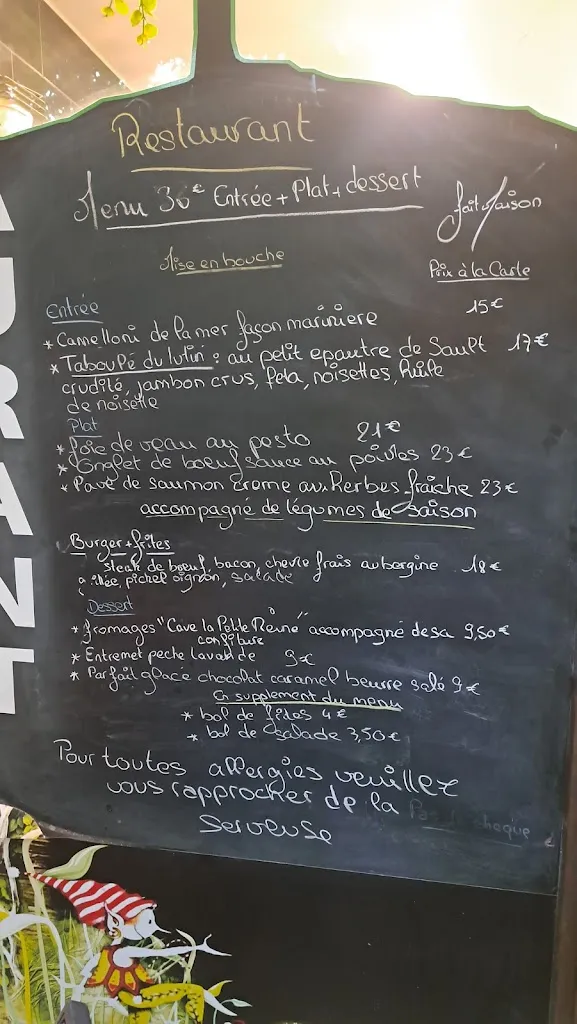 Restaurant
Menu 36€ Entrée + Plat + dessert
fait Maison
Mise en bouche
Prix à la Carte
Entrée
* Camelloni de la mer façon mariniere 15€
* Taboulé du lutin : au petit epautre de Sault 17€
crudité, jambon crus, feta, noisettes, huile
de noisette
Plat
* Foie de veau au pesto 21€
* Onglet de boeuf sauce au poivres 23€
* Pavé de saumon creme aux herbes fraîche 23€
accompagné de légumes de saison
Burger + frites
steak de boeuf, bacon, chevre frais aubergine 18€
grillée, pickel oignon, salade
Dessert
* fromages "Cave la Petite Reine" accompagné de sa 9,50€
confiture
* Entremet peche lavande 9€
* Parfait glace chocolat caramel beurre salé 9€
En supplement du menu
* bol de frites 4€
* bol de salade 3,50€
Pour toutes allergies veuillez
vous rapprocher de la
serveuse
Pas de cheque
URANT